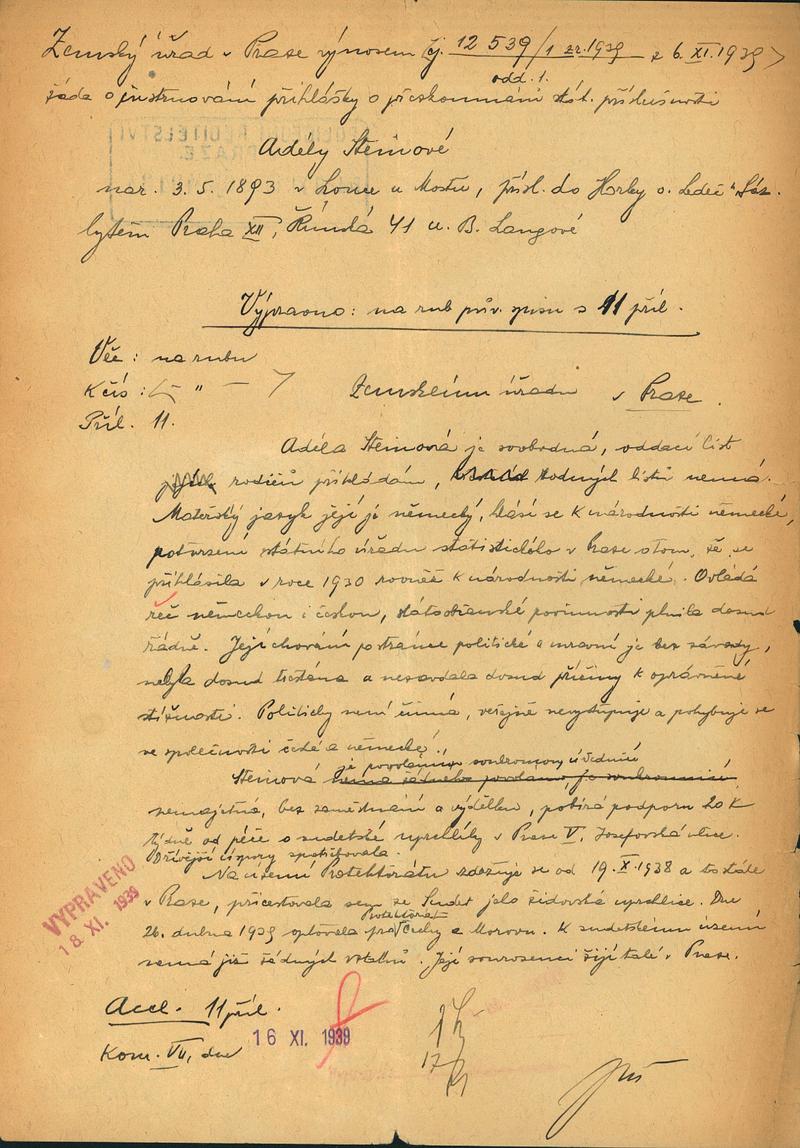 Zemský úřad v Praze výnosem čj. 12 539/1 zř. 1939 z 6. XI. 1939
odd. 1.
žádá o instruování přihlášky o přezkoumání stát. příslušnosti
Adély Steinové
nar. 3. 5. 1893 v Lomu u Mostu, přísl. do Horky o. Ledeč n. Sáz.
bytem Praha XII, Římská 41 u B. Langové
Vypraveno: na rub pův. spisu s 11 příl.
Věc: na rubu
K čís: "
Zemskému úřadu v Praze.
Příl. 11.
Adéla Steinová je svobodná, oddací list
rodičů přikládám, rodných listů nemá.
Mateřský jazyk její je německý, hlásí se k národnosti německé,
potvrzení státního úřadu statistického v Praze o tom, že se
přihlásila v roce 1930 rovněž k národnosti německé. Ovládá
řeč německou i českou, státoobčanské povinnosti plnila dosud
řádně. Její chování po stránce politické a mravní je bez závady,
nebyla dosud trestána a nezavdala dosud příčiny k oprávněné
stížnosti. Politicky není činná, veřejně nevystupuje a pohybuje se
ve společnosti české a německé.
je povoláním soukromou úřednicí
Steinová nemá žádného povolání, je soukromnicí
nemajetná, bez zaměstnání a výdělku, pobírá podporu 20 K
týdně od péče o sudetské uprchlíky v Praze V, Josefovská ulice.
Dřívější úspory spotřebovala.
Na území Protektorátu zdržuje se od 19. X. 1938 a to stále
v Praze, přicestovala sem ze Sudet jako židovská uprchlice. Dne
Protektorát
26. dubna 1939 optovala pro Čechy a Moravu. K sudetskému území
nemá již žádných vztahů. Její sourozenci žijí také v Praze.
VYPRAVENO
18. XI. 1939
Accl. 11 příl.
Kom. VII, dne 16 XI. 1939
17/XI